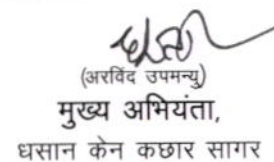 (अरविंद उपमन्यु)
मुख्य अभियंता,
धसान केन कछार सागर